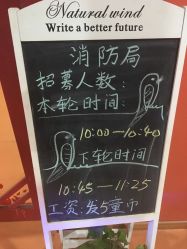 Natural wind
Write a better future
消防局
招募人数:
本轮时间:
10:00—10:40
下轮时间
10:45—11:25
工资:发5童币